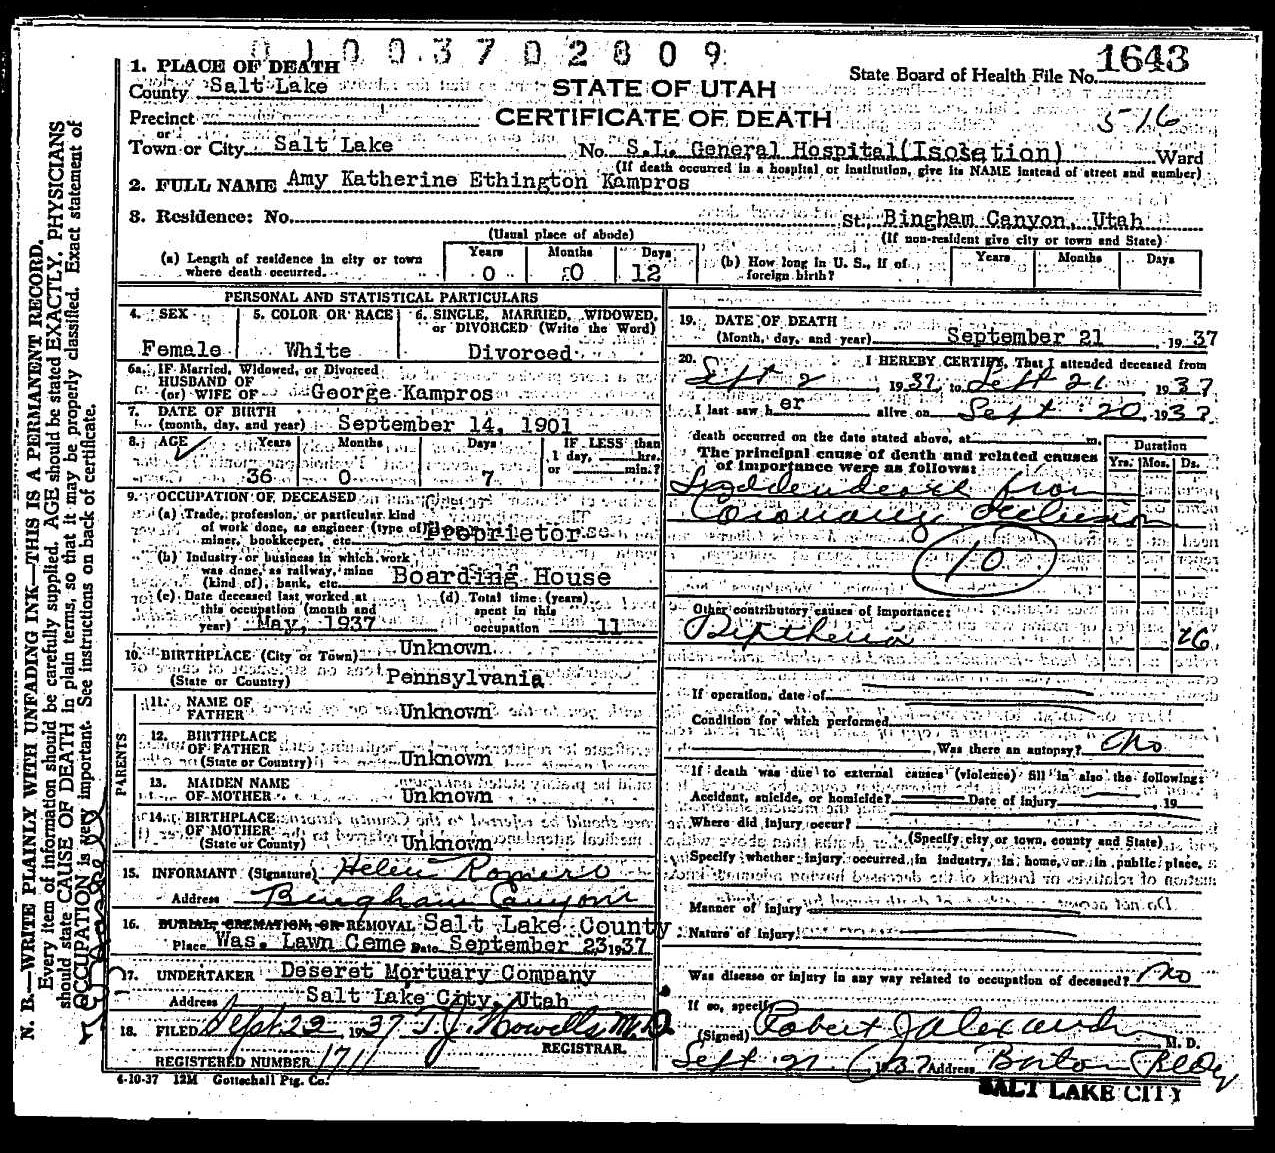 01003702809
1643
1. PLACE OF DEATH
State Board of Health File No.
County Salt Lake
STATE OF UTAH
Precinct
CERTIFICATE OF DEATH
516
or
Town or City Salt Lake No. S.L. General Hospital(Isolation) Ward
(If death occurred in a hospital or institution, give its NAME instead of street and number)
2. FULL NAME Amy Katherine Ethington Kampros
3. Residence: No. St. Bingham Canyon, Utah
(Usual place of abode) (If non-resident give city or town and State)
(a) Length of residence in city or town where death occurred. Years 0 Months 0 Days 12
(b) How long in U. S., if of foreign birth? Years Months Days
PERSONAL AND STATISTICAL PARTICULARS
4. SEX Female
5. COLOR OR RACE White
6. SINGLE, MARRIED, WIDOWED, or DIVORCED (Write the Word) Divorced
6a. IF Married, Widowed, or Divorced
HUSBAND OF
(or) WIFE OF George Kampros
7. DATE OF BIRTH
(month, day, and year) September 14, 1901
8. AGE Years 36 Months 0 Days 7 IF LESS than 1 day, hrs. or min.?
9. OCCUPATION OF DECEASED
(a) Trade, profession, or particular kind of work done, as engineer (type of) miner, bookkeeper, etc. Proprietor
(b) Industry or business in which work was done, as railway, mine (kind of), bank, etc. Boarding House
(c) Date deceased last worked at this occupation (month and year) May, 1937
(d) Total time (years) spent in this occupation 11
10. BIRTHPLACE (City or Town) Unknown
(State or Country) Pennsylvania
PARENTS
11. NAME OF FATHER Unknown
12. BIRTHPLACE OF FATHER (State or Country) Unknown
13. MAIDEN NAME OF MOTHER Unknown
14. BIRTHPLACE OF MOTHER (State or County) Unknown
15. INFORMANT (Signature) Helen Romero
Address Bingham Canyon
16. BURIAL, CREMATION, OR REMOVAL Salt Lake County
Place Was. Lawn Ceme Date September 23, 1937
17. UNDERTAKER Deseret Mortuary Company
Address Salt Lake City, Utah
18. FILED Sept 22 1937 T. J. Howells, M.D.
REGISTRAR.
REGISTERED NUMBER 1711
4-10-37 12M Gottschall Ptg. Co.
19. DATE OF DEATH
(Month, day, and year) September 21, 1937
20. I HEREBY CERTIFY, That I attended deceased from
Sept 2, 1937, to Sept 21 1937
I last saw her alive on Sept 20, 1937
death occurred on the date stated above, at m.
Duration
The principal cause of death and related causes of importance were as follows: Yrs. Mos. Ds.
Sudden death from
Coronary occlusion
10
Other contributory causes of importance:
Diptheria 26
If operation, date of
Condition for which performed
Was there an autopsy? No
If death was due to external causes (violence) fill in also the following:
Accident, suicide, or homicide? Date of injury , 19
Where did injury occur?
(Specify city or town, county and State)
Specify whether injury occurred in industry, in home, or in public place.
Manner of injury
Nature of injury
Was disease or injury in any way related to occupation of deceased? No
If so, specify
(Signed) Robert J Alexander M. D.
Sept 21, 1937 Address Boston Bldg
SALT LAKE CITY
N. B.—WRITE PLAINLY WITH UNFADING INK—THIS IS A PERMANENT RECORD.
Every item of information should be carefully supplied. AGE should be stated EXACTLY. PHYSICIANS
should state CAUSE OF DEATH in plain terms, so that it may be properly classified. Exact statement of
OCCUPATION is very important. See instructions on back of certificate.